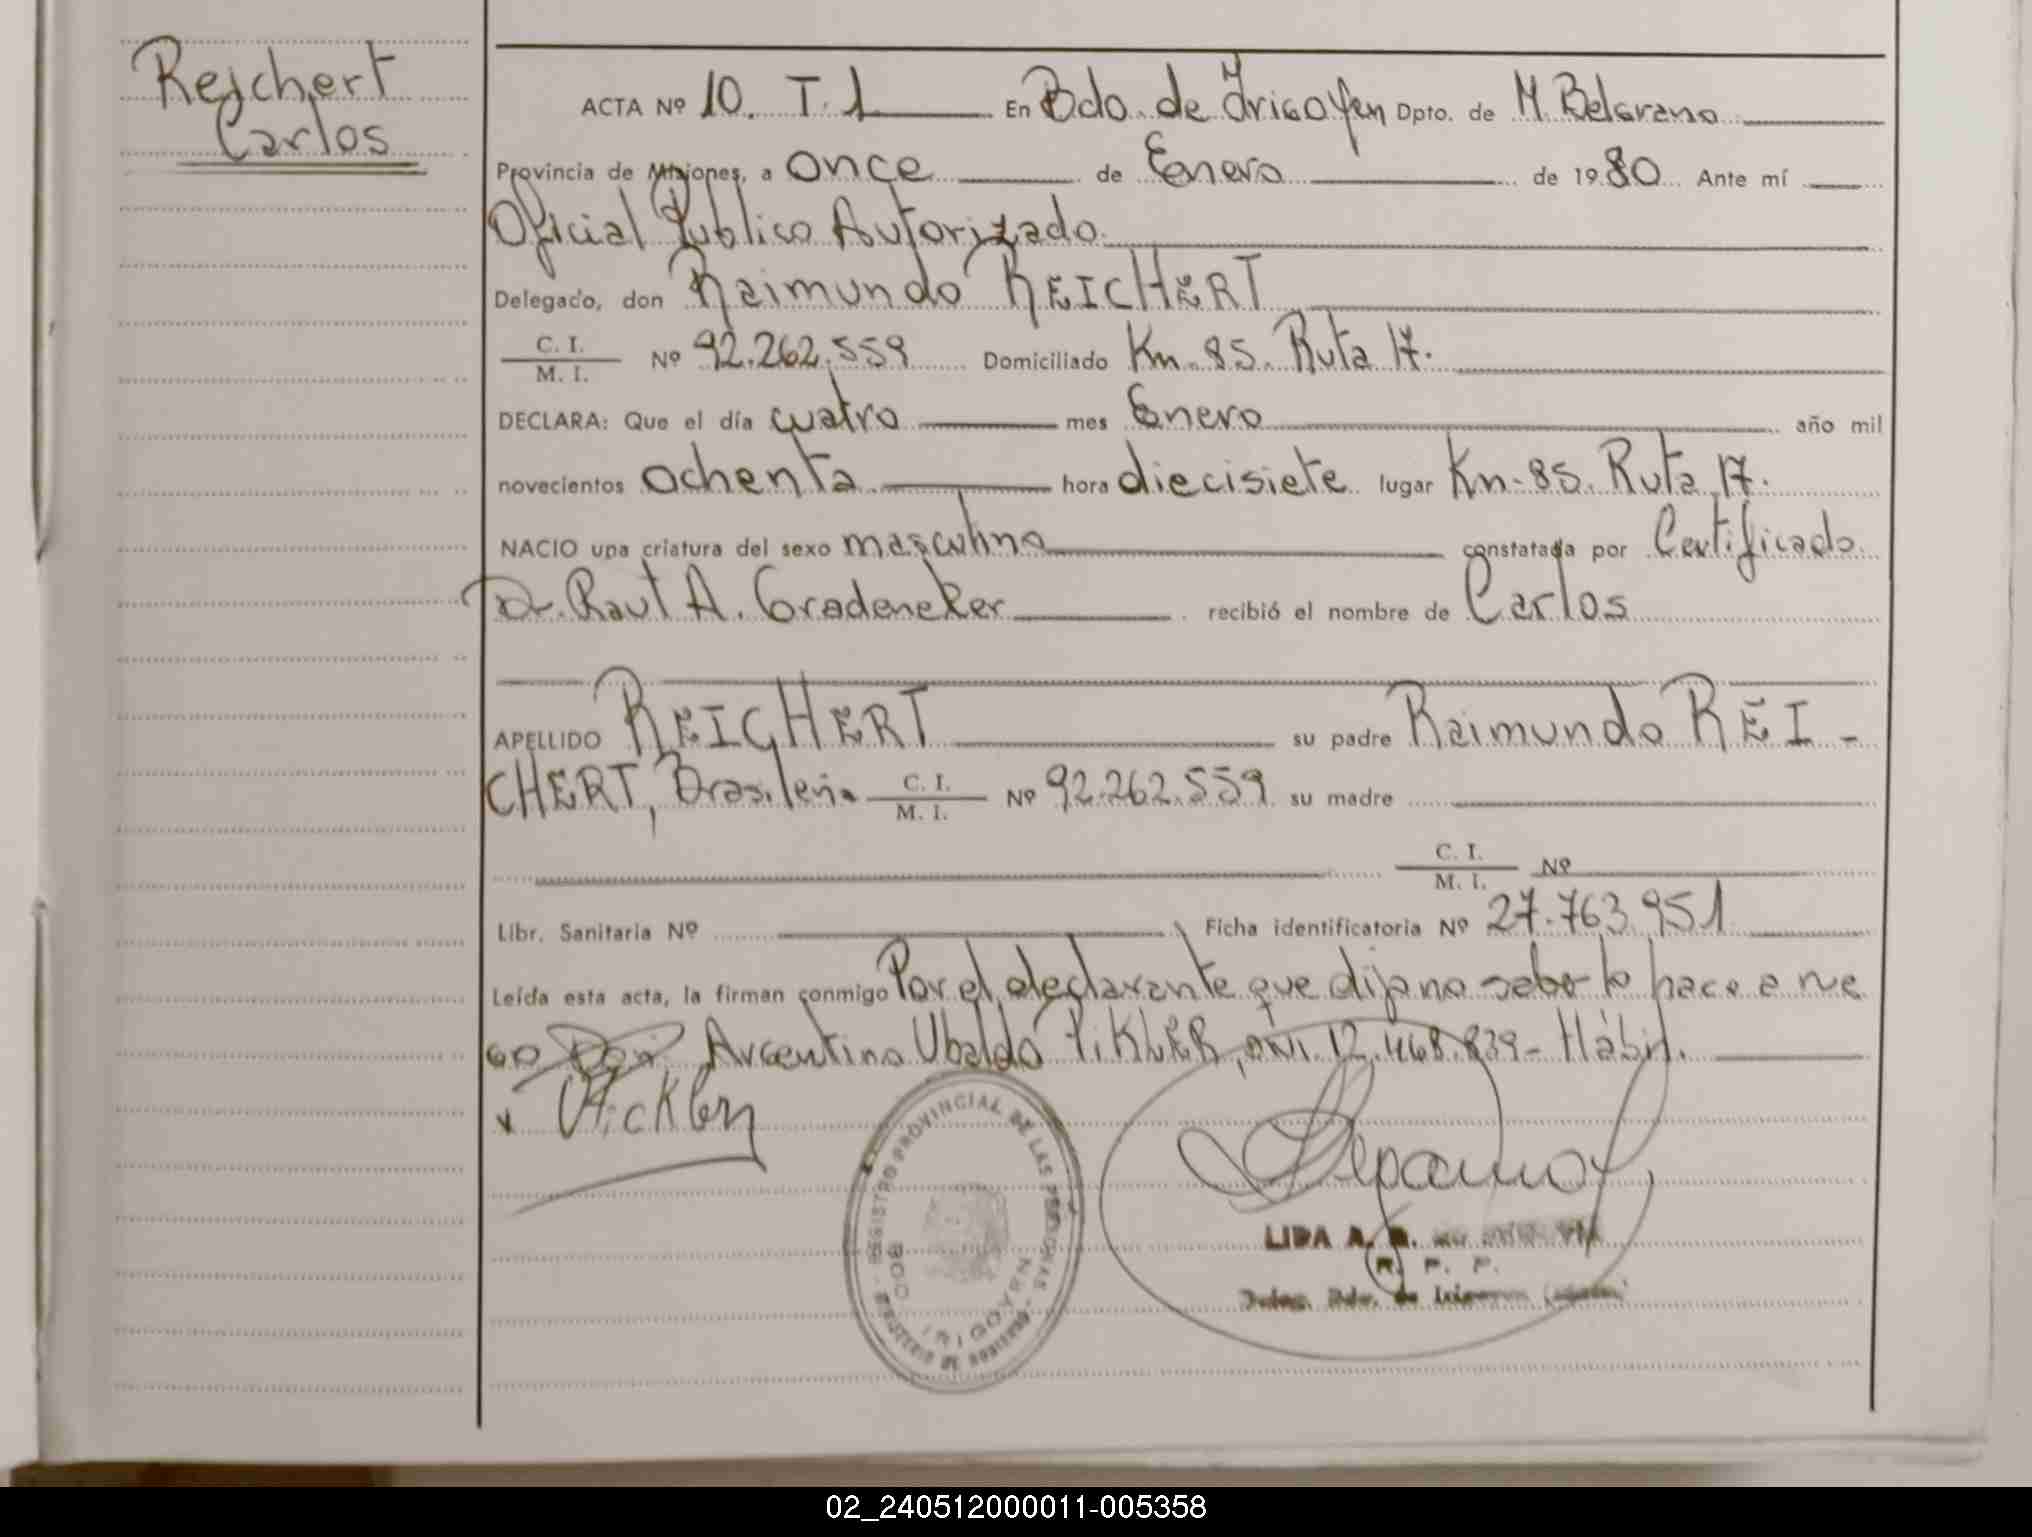 Reichert
Carlos
ACTA Nº 10. T. 1 En Bdo. de Irigoyen Dpto. de M. Belgrano
Provincia de Misiones, a once de Enero de 1980 Ante mí
Oficial Público Autorizado.
Delegado, don Raimundo REICHERT
C. I.
M. I. Nº 92.262.559 Domiciliado Km. 85. Ruta 17.
DECLARA: Que el día cuatro mes Enero año mil
novecientos ochenta hora diecisiete lugar Km. 85. Ruta 17.
NACIO una criatura del sexo masculino constatada por Certificado
Dr. Raul A. Gradeneker recibió el nombre de Carlos
APELLIDO REICHERT su padre Raimundo REI-
CHERT, Brasileña C. I. M. I. Nº 92.262.559 su madre
C. I.
M. I. Nº
Libr. Sanitaria Nº Ficha identificatoria Nº 27.763.951
Leída esta acta, la firman conmigo Por el declarante que dijo no saber lo hace a rue
go Don Argentino Ubaldo PIKLER, DNI. 12.468.839- Hábil.
REGISTRO PROVINCIAL DE LAS PERSONAS - MINISTERIO DE GOBIERNO
BDO. IRIGOYEN
LIDA A.
R. P. P.
Deleg. Bdo. de Irigoyen
02_240512000011-005358